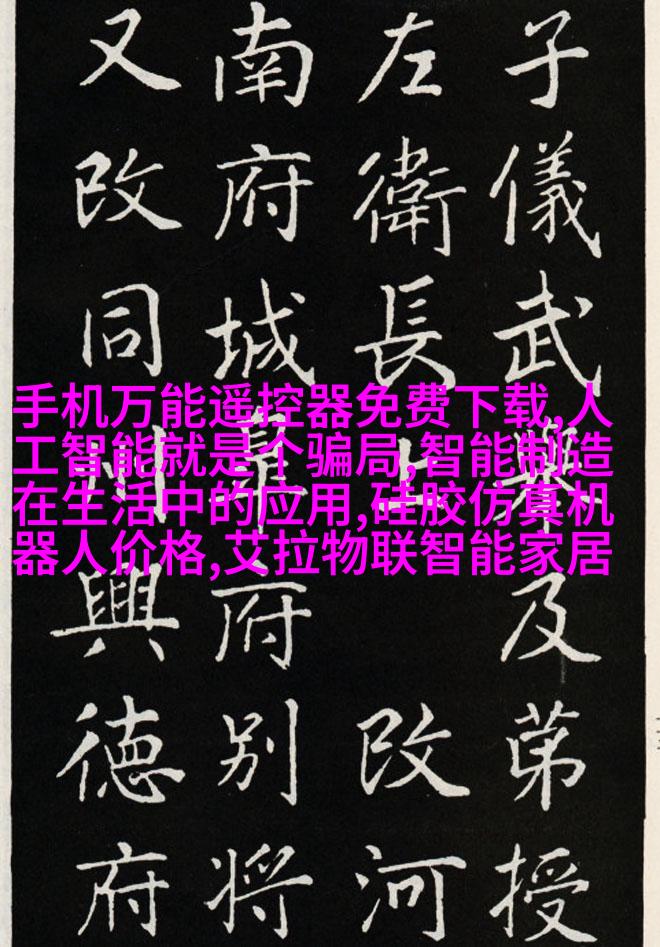 子儀武舉及苐授
左衛長上改河
南府城府别将
又改同州興徳府
手机万能遥控器免费下载,人
工智能就是个骗局,智能制造
在生活中的应用,硅胶仿真机
器人价格,艾拉物联智能家居